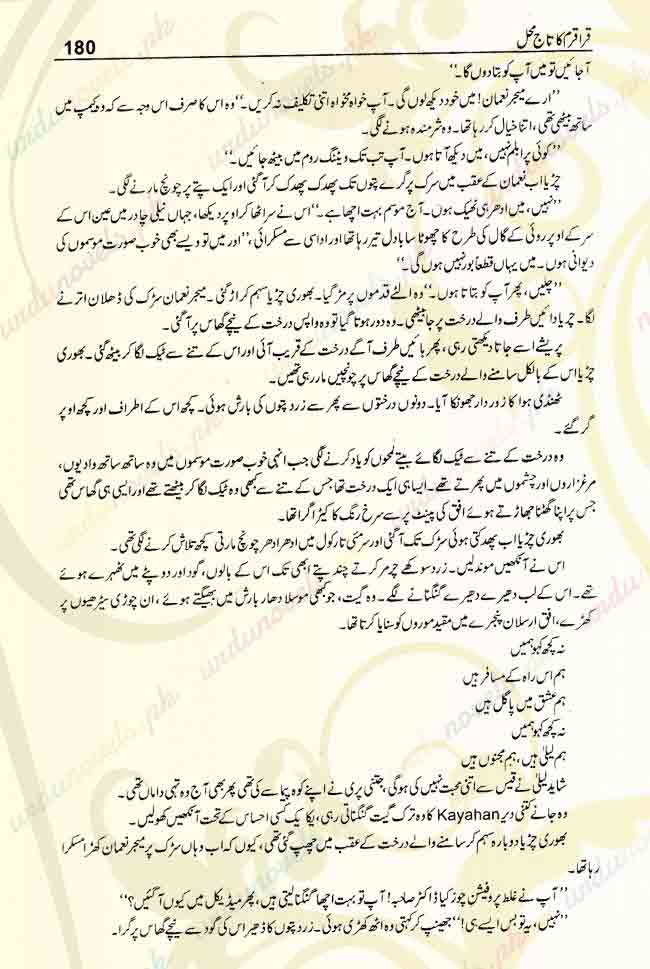 قراقرم کا تاج محل
180
آ جائیں تو میں آپ کو بتا دوں گا۔‘‘
’’ارے میجر نعمان! میں خود دیکھ لوں گی۔ آپ خواہ مخواہ اتنی تکلیف نہ کریں۔‘‘ وہ اس کا صرف اس وجہ سے کہ وہ کیمپ میں
ساتھ بیٹھی تھی، اتنا خیال کر رہا تھا۔ وہ شرمندہ ہونے لگی۔
’’کوئی پرابلم نہیں، میں دیکھ آتا ہوں۔ آپ تب تک ویٹنگ روم میں بیٹھ جائیں۔‘‘
چڑیا اب نعمان کے عقب میں سرک پر گرے پتوں تک پھدک پھدک کر آ گئی اور ایک پتے پر چونچ مارنے لگی۔
’’نہیں، میں ادھر ہی ٹھیک ہوں۔ آج موسم بہت اچھا ہے۔‘‘ اس نے سر اٹھا کر اوپر دیکھا، جہاں نیلی چادر میں عین اس کے
سر کے اوپر روئی کے گال کی طرح کا چھوٹا سا بادل تیر رہا تھا اور اداسی سے مسکرائی، ’’اور میں تو ویسے بھی خوب صورت موسموں کی
دیوانی ہوں۔ میں یہاں قطعاً بور نہیں ہوں گی۔‘‘
’’چلیں، پھر آپ کو بتاتا ہوں۔‘‘ وہ الٹے قدموں پر مڑ گیا۔ بھوری چڑیا سہم کر اڑ گئی۔ میجر نعمان سڑک کی ڈھلان اترنے
لگا۔ چڑیا دائیں طرف والے درخت پر جا بیٹھی۔ وہ دور ہوتا گیا تو وہ واپس درخت کے نیچے گھاس پر آ گئی۔
پریشے اسے جاتا دیکھتی رہی، پھر بائیں طرف آگے درخت کے قریب آئی اور اس کے تنے سے ٹیک لگا کر بیٹھ گئی۔ بھوری
چڑیا اس کے بالکل سامنے والے درخت کے نیچے گھاس پر چونچیں مار رہی تھیں۔
ٹھنڈی ہوا کا زوردار جھونکا آیا۔ دونوں درختوں سے پھر سے زرد پتوں کی بارش ہوئی۔ کچھ اس کے اطراف اور کچھ اوپر
گر گئے۔
وہ درخت کے تنے سے ٹیک لگائے بیتے لمحوں کو یاد کرنے لگی جب انہی خوب صورت موسموں میں وہ ساتھ ساتھ وادیوں،
مرغزاروں اور چشموں میں پھرتے تھے۔ ایسا ہی ایک درخت تھا جس کے تنے سے کبھی وہ ٹیک لگا کر بیٹھتے تھے اور ایسی ہی گھاس تھی
جس پر اپنا گھٹنا جھاڑتے ہوئے افق کی پینٹ پر سے سرخ رنگ کا کیڑا گرا تھا۔
بھوری چڑیا اب پھدکتی ہوئی سڑک تک آ گئی اور سرمئی تارکول میں ادھر ادھر چونچ مارتی کچھ تلاش کرنے لگی تھی۔
اس نے آنکھیں موند لیں۔ زرد سوکھے چرمر کرتے چند پتے ابھی تک اس کے بالوں، گود اور دوپٹے میں ٹھہرے ہوئے
تھے۔ اس کے لب دھیرے دھیرے گنگنانے لگے۔ وہ گیت، جو کبھی موسلا دھار بارش میں بھیگتے ہوئے، ان چوڑی سیڑھیوں پر
کھڑے، افق ارسلان پنجرے میں مقید موروں کو سنایا کرتا تھا۔
نہ کچھ کہو ہمیں
ہم اس راہ کے مسافر ہیں
ہم عشق میں پاگل ہیں
نہ کچھ کہو ہمیں
ہم لیلیٰ ہیں، ہم مجنوں ہیں
شاید لیلیٰ نے قیس سے اتنی محبت نہیں کی ہوگی، جتنی پری نے اپنے کوہ پیما سے کی تھی پھر بھی آج وہ تہی داماں تھی۔
وہ جانے کتنی دیر Kayahan کا وہ ترک گیت گنگناتی رہی، یکایک کسی احساس کے تحت آنکھیں کھولیں۔
بھوری چڑیا دوبارہ سہم کر سامنے والے درخت کے عقب میں چھپ گئی تھی، کیوں کہ اب وہاں سڑک پر میجر نعمان کھڑا مسکرا
رہا تھا۔
’’آپ نے غلط پروفیشن چوز کیا ڈاکٹر صاحبہ! آپ تو بہت اچھا گنگنا لیتی ہیں، پھر میڈیکل میں کیوں آ گئیں؟‘‘
’’نہیں، یہ تو بس ایسے ہی!‘‘ جھینپ کر کہتی وہ اٹھ کھڑی ہوئی۔ زرد پتوں کا ڈھیر اس کی گود سے نیچے گھاس پر گرا۔
urdunovels.pk